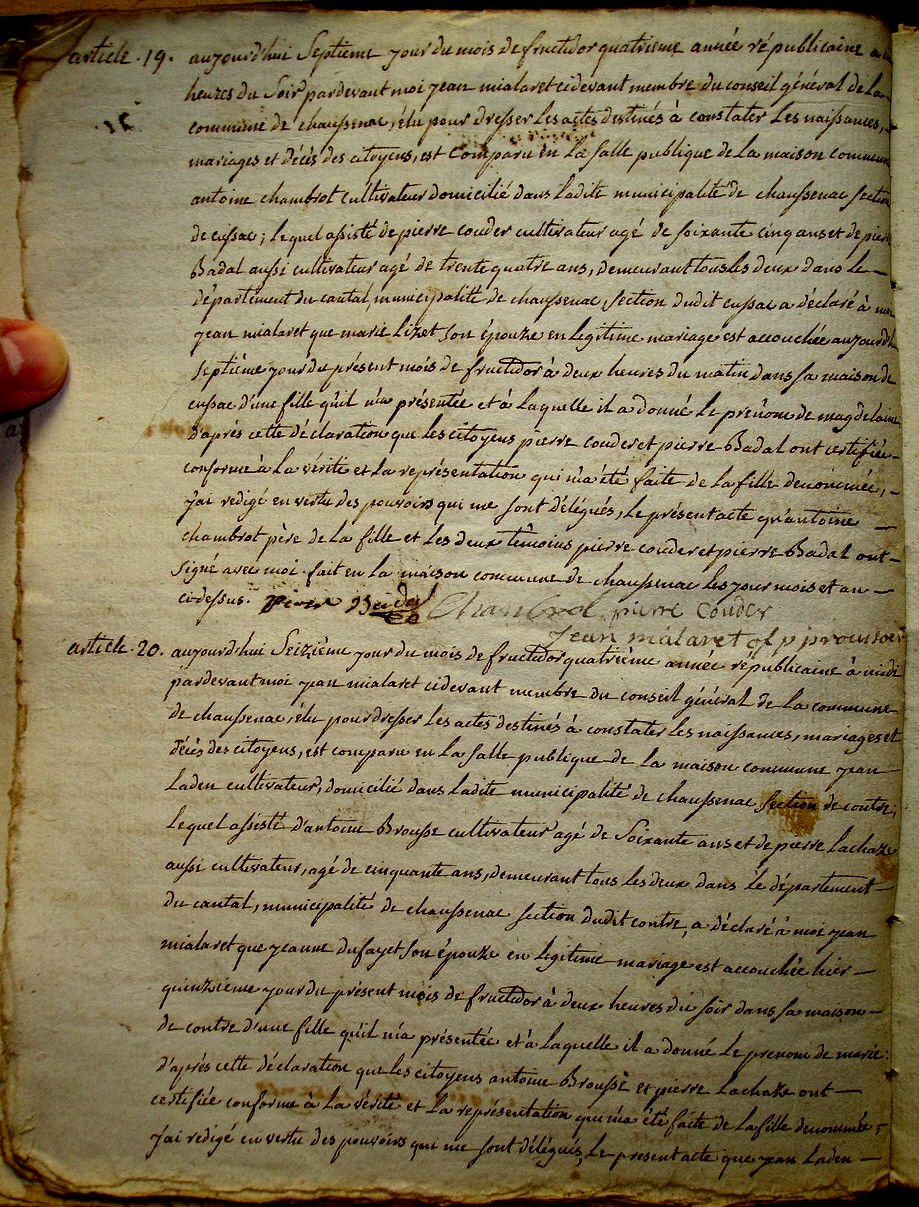 article 19. aujourd'hui Septieme jour du mois de fructidor quatrieme année républicaine a
heures du Soir pardevant moi jean mialaret cidevant membre du conseil général de la
commune de chaussenac, élu pour dresser les actes destinés à constater les naissances,
mariages et décès des citoyens, est comparu en la salle publique de la maison commune
antoine chambrot cultivateur domicilié dans ladite municipalité de chaussenac section
de cussac; lequel assisté de pierre couder cultivateur agé de soixante cinq ans et de pierre
Badal aussi cultivateur agé de trente quatre ans, demeurant tous les deux dans le
département du cantal, municipalité de chaussenac, section dudit cussac a déclaré à moi
jean mialaret que marie Lizet son épouze en legitime mariage est accouchée aujourd'hui
septième jour du présent mois de fructidor à deux heures du matin dans sa maison de
cussac d'une fille qu'il m'a présentée et à laquelle il a donné le prénom de magdelaine
d'après cette déclaration que les citoyens pierre couder et pierre Badal ont certifiée
conforme à la vérité et la représentation qui m'a été faite de la fille denommée,
j'ai redigé en vertu des pouvoirs qui me sont délégués, le présent acte qu'antoine
chambrot père de la fille et les deux témoins pierre couder et pierre Badal ont
signé avec moi. fait en la maison commune de chaussenac les jour mois et an
ci-dessus. Chambrot pierre couder
jean malaret of p
article 20. aujourd'hui Seizième jour du mois de fructidor quatrième année républicaine à midi
pardevant moi jean mialaret cidevant membre du conseil général de la commune
de chaussenac, élu pour dresser les actes destinés à constater les naissances, mariages et
décès des citoyens, est comparu en la salle publique de la maison commune jean
Laden cultivateur, domicilié dans ladite municipalité de chaussenac section de contre;
lequel assisté d'antoine Brousse cultivateur agé de Soixante ans et de pierre Lachaze
aussi cultivateur, agé de cinquante ans, demeurant tous les deux dans le département
du cantal, municipalité de chaussenac section dudit contre, a déclaré à moi jean
mialaret que jeanne dufayet son épouze en légitime mariage est accouchée hier
quinzieme jour du présent mois de fructidor à deux heures du soir dans sa maison
de contre d'une fille qu'il m'a présentée et à laquelle il a donné le prenom de marie:
d'après cette déclaration que les citoyens antoine Brousse et pierre Lachaze ont
certifiée conforme à la vérité et la représentation qui m'a été faite de la fille denommée,
j'ai redigé en vertu des pouvoirs qui me sont délégués, le present acte que jean Laden